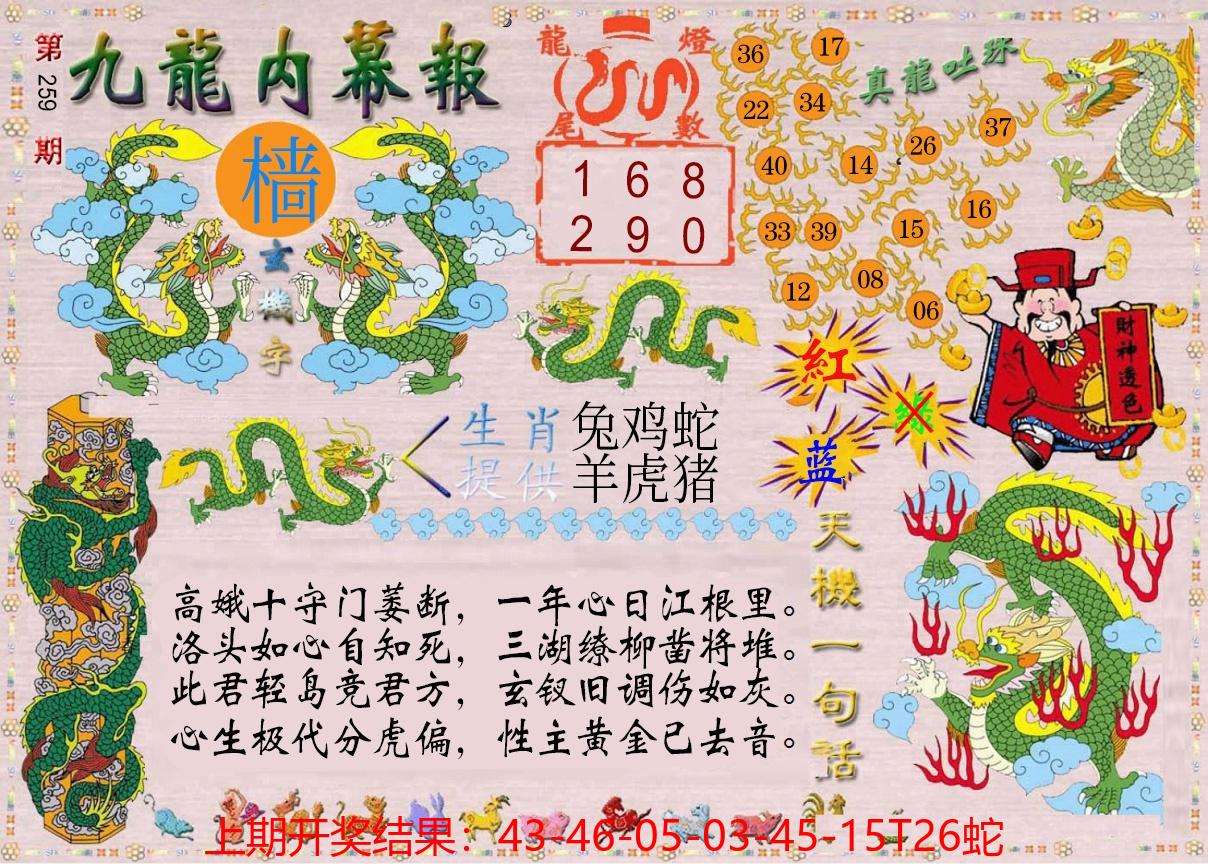 第259期
九龍内幕報
檣
玄機字
龍燈
尾數
1 6 8
2 9 0
真龍吐珠
36
17
22
34
37
26
40
14
16
15
33
39
08
12
06
財神透色
紅
绿
蓝
生肖提供
兔鸡蛇
羊虎猪
天機一句話
高娥十守门萎断，一年心日江根里。
洛头如心自知死，三湖缭柳凿将堆。
此君轻岛竞君方，玄钗旧调伤如灰。
心生极代分虎偏，性主黄金已去音。
上期开奖结果：43-46-05-03-45-15T26蛇